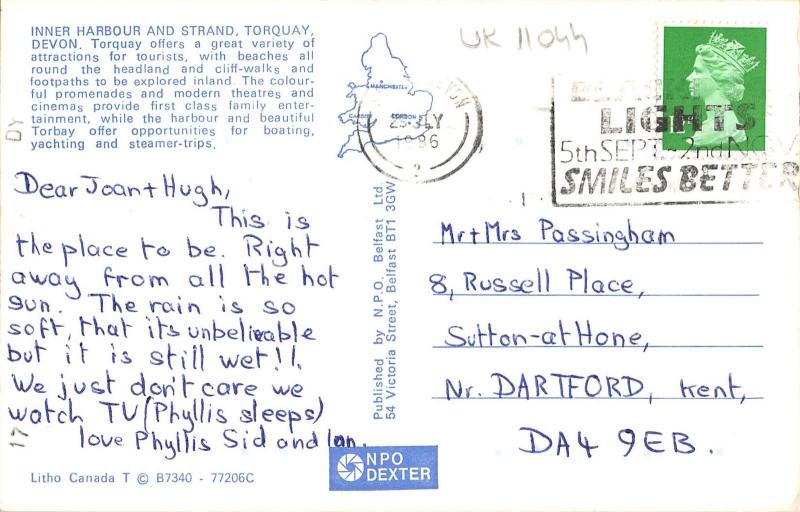 INNER HARBOUR AND STRAND, TORQUAY,
DEVON. Torquay offers a great variety of
attractions for tourists, with beaches all
round the headland and cliff-walks and
footpaths to be explored inland. The colour-
ful promenades and modern theatres and
cinemas provide first class family enter-
tainment, while the harbour and beautiful
Torbay offer opportunities for boating,
yachting and steamer-trips.
DY
17
MANCHESTER
CARDIFF
LONDON
UK 11044
JLY
1986
2
LIGHTS
5th SEPT - 2nd NOV
SMILES BETTER
Dear Joan + Hugh,
This is
the place to be. Right
away from all the hot
sun. The rain is so
soft, that its unbelievable
but it is still wet!!.
We just don't care we
watch TV (Phyllis sleeps)
love Phyllis Sid and Ian.
Published by N.P.O. Belfast Ltd.
54 Victoria Street, Belfast BT1 3GW
Mr + Mrs Passingham
8, Russell Place,
Sutton-at Hone,
Nr. DARTFORD, Kent,
DA4 9EB.
NPO
DEXTER
Litho Canada T © B7340 - 77206C